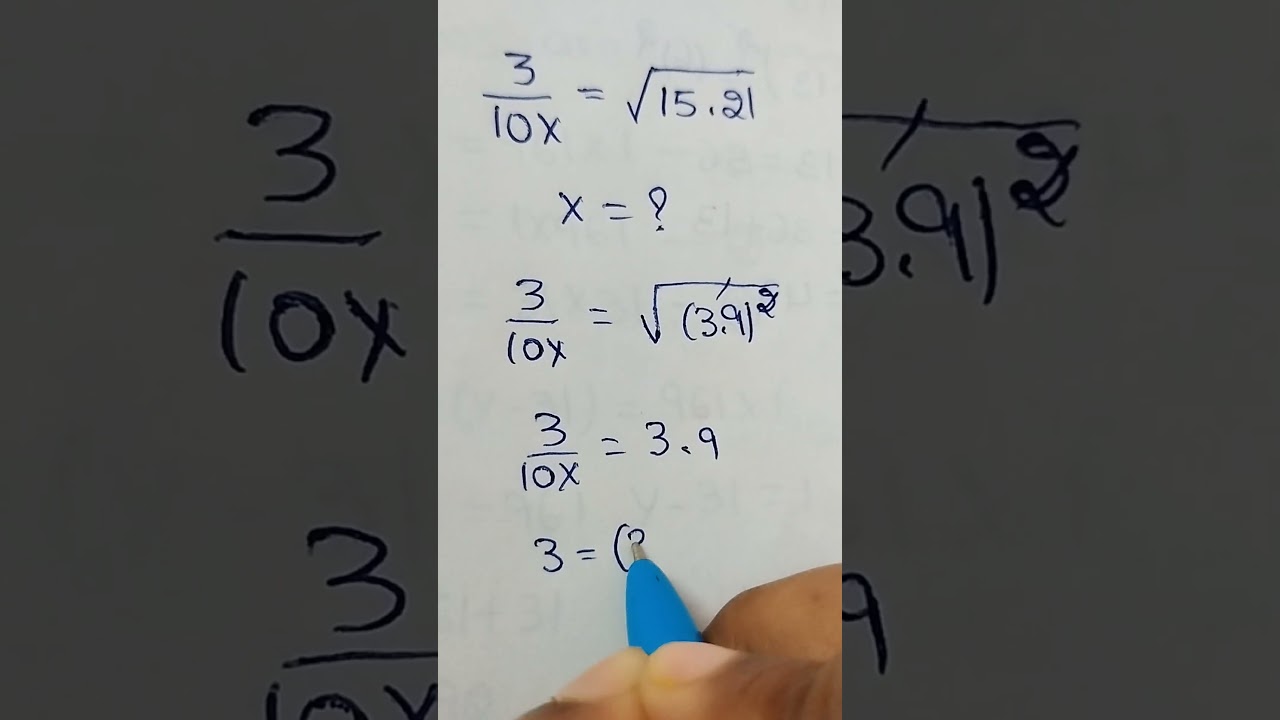 3/10x = √15.21
x = ?
3/10x = √(3.9)²
3/10x = 3.9
3 = (3